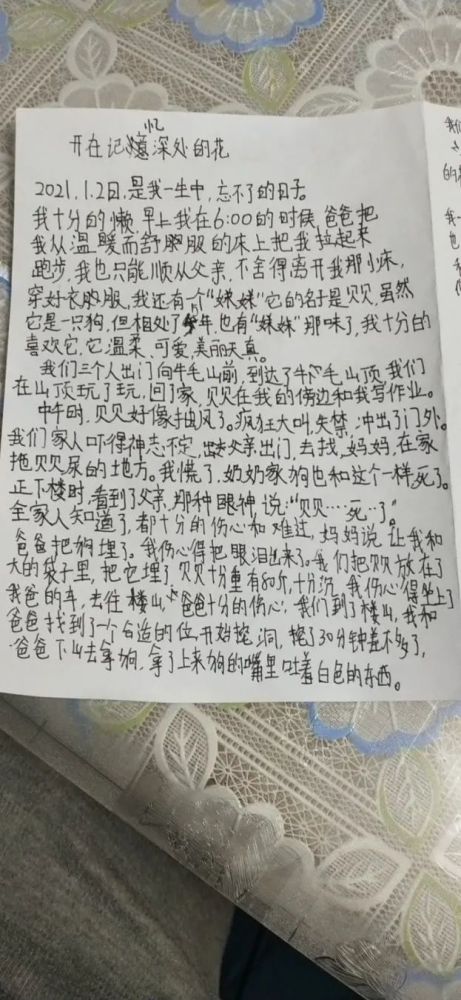 开在记忆深处的花
2021.1.2日,是我一生中,忘不了的日子。
我十分的懒,早上我在6:00的时候,爸爸把
我从温暖而舒服的床上把我拉起来
跑步,我也只能顺从父亲,不舍得离开我那小床,
穿好衣服,我还有个“妹妹”它的名子是贝贝,虽然
它是一只狗,但相处了年,也有“妹妹”那味了,我十分的
喜欢它,它温柔、可爱,美丽天真。
我们三个人出门向牛毛山前,到达了牛毛山顶,我们
在山顶玩了玩,回了家,贝贝在我的傍边和我写作业。
中午时,贝贝好像抽风了。疯狂大叫,失禁,冲出了门外。
我们家人吓得神志不定,父亲出门,去找,妈妈,在家
拖贝贝尿的地方。我慌了,奶奶家狗也和这个一样死了。
正下楼时,看到了父亲,那种眼神,说:“贝贝…死…了”。
全家人知道了,都十分的伤心和难过,妈妈说,让我和
爸爸把狗埋了。我伤心得把眼泪出来了。我们把贝贝放在了
大的袋子里,把它埋了,贝贝十分重有80斤,十分沉,我伤心得坐上了
我爸的车,去往楼山,爸爸十分的伤心,我们到了楼山,我和
爸爸找到了一个合造的位,开始挖洞,挖了30分钟差不多了,
爸爸下山去拿狗,拿了上来狗的嘴里吐着白色的东西。
我